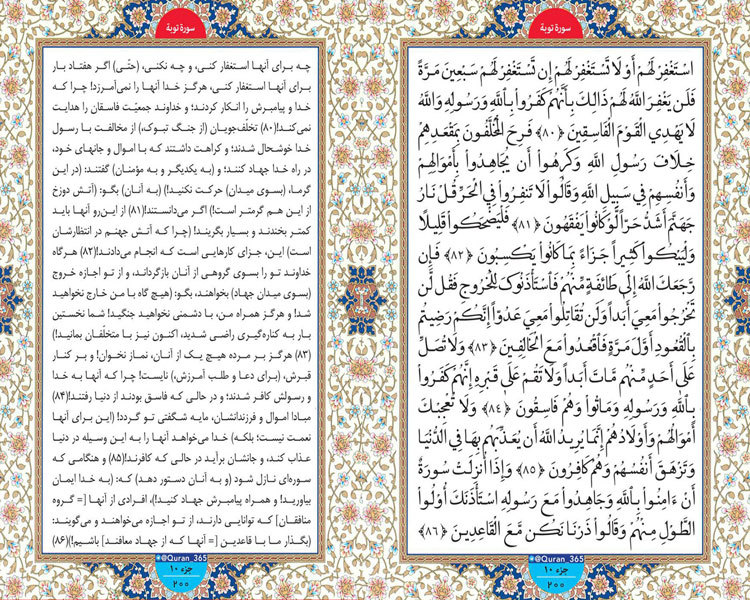 سورة توبة
اسْتَغْفِرْ لَهُمْ أَوْ لَا تَسْتَغْفِرْ لَهُمْ إِن تَسْتَغْفِرْ لَهُمْ سَبْعِينَ مَرَّةً
فَلَن يَغْفِرَ اللَّهُ لَهُمْ ذَٰلِكَ بِأَنَّهُمْ كَفَرُوا بِاللَّهِ وَرَسُولِهِ وَاللَّهُ
لَا يَهْدِي الْقَوْمَ الْفَاسِقِينَ ﴿٨٠﴾ فَرِحَ الْمُخَلَّفُونَ بِمَقْعَدِهِمْ
خِلَافَ رَسُولِ اللَّهِ وَكَرِهُوا أَن يُجَاهِدُوا بِأَمْوَالِهِمْ
وَأَنفُسِهِمْ فِي سَبِيلِ اللَّهِ وَقَالُوا لَا تَنفِرُوا فِي الْحَرِّ قُلْ نَارُ
جَهَنَّمَ أَشَدُّ حَرًّا لَّوْ كَانُوا يَفْقَهُونَ ﴿٨١﴾ فَلْيَضْحَكُوا قَلِيلًا
وَلْيَبْكُوا كَثِيرًا جَزَاءً بِمَا كَانُوا يَكْسِبُونَ ﴿٨٢﴾ فَإِن
رَّجَعَكَ اللَّهُ إِلَىٰ طَائِفَةٍ مِّنْهُمْ فَاسْتَأْذَنُوكَ لِلْخُرُوجِ فَقُل لَّن
تَخْرُجُوا مَعِيَ أَبَدًا وَلَن تُقَاتِلُوا مَعِيَ عَدُوًّا إِنَّكُمْ رَضِيتُم
بِالْقُعُودِ أَوَّلَ مَرَّةٍ فَاقْعُدُوا مَعَ الْخَالِفِينَ ﴿٨٣﴾ وَلَا تُصَلِّ
عَلَىٰ أَحَدٍ مِّنْهُم مَّاتَ أَبَدًا وَلَا تَقُمْ عَلَىٰ قَبْرِهِ إِنَّهُمْ كَفَرُوا
بِاللَّهِ وَرَسُولِهِ وَمَاتُوا وَهُمْ فَاسِقُونَ ﴿٨٤﴾ وَلَا تُعْجِبْكَ
أَمْوَالُهُمْ وَأَوْلَادُهُمْ إِنَّمَا يُرِيدُ اللَّهُ أَن يُعَذِّبَهُم بِهَا فِي الدُّنْيَا
وَتَزْهَقَ أَنفُسُهُمْ وَهُمْ كَافِرُونَ ﴿٨٥﴾ وَإِذَا أُنزِلَتْ سُورَةٌ
أَنْ ءَامِنُوا بِاللَّهِ وَجَاهِدُوا مَعَ رَسُولِهِ اسْتَأْذَنَكَ أُولُوا
الطَّوْلِ مِنْهُمْ وَقَالُوا ذَرْنَا نَكُن مَّعَ الْقَاعِدِينَ ﴿٨٦﴾
@Quran_365
جزء ۱۰
۲۰۰
سورة توبة
چه برای آنها استغفار کنی، و چه نکنی، (حتّی) اگر هفتاد بار
برای آنها استغفار کنی، هرگز خدا آنها را نمی‌آمرزد! چرا که
خدا و پیامبرش را انکار کردند؛ و خداوند جمعیّت فاسقان را هدایت
نمی‌کند!(۸۰) تخلّف‌جویان (از جنگ تبوک)، از مخالفت با رسول
خدا خوشحال شدند؛ و کراهت داشتند که با اموال و جانهای خود،
در راه خدا جهاد کنند؛ و (به یکدیگر و به مؤمنان) گفتند: (در این
گرما، (بسوی میدان) حرکت نکنید!) (به آنان) بگو: (آتش دوزخ
از این هم گرمتر است!) اگر می‌دانستند!(۸۱) از این‌رو آنها باید
کمتر بخندند و بسیار بگریند! (چرا که آتش جهنم در انتظارشان
است) این، جزای کارهایی است که انجام می‌دادند!(۸۲) هرگاه
خداوند تو را بسوی گروهی از آنان بازگرداند، و از تو اجازه خروج
(بسوی میدان جهاد) بخواهند، بگو: (هیچ گاه با من خارج نخواهید
شد! و هرگز همراه من، با دشمنی نخواهید جنگید! شما نخستین
بار به کناره‌گیری راضی شدید، اکنون نیز با متخلّفان بمانید!)
(۸۳) هرگز بر مرده هیچ یک از آنان، نماز نخوان! و بر کنار
قبرش، (برای دعا و طلب آمرزش،) نایست! چرا که آنها به خدا
و رسولش کافر شدند؛ و در حالی که فاسق بودند از دنیا رفتند!(۸۴)
مبادا اموال و فرزندانشان، مایه شگفتی تو گردد! (این برای آنها
نعمت نیست؛ بلکه) خدا می‌خواهد آنها را به این وسیله در دنیا
عذاب کند، و جانشان برآید در حالی که کافرند!(۸۵) و هنگامی که
سوره‌ای نازل شود (و به آنان دستور دهد) که: (به خدا ایمان
بیاورید! و همراه پیامبرش جهاد کنید!)، افرادی از آنها [= گروه
منافقان] که توانایی دارند، از تو اجازه می‌خواهند و می‌گویند:
(بگذار ما با قاعدین [= آنها که از جهاد معافند] باشیم!)(۸۶)
@Quran_365
جزء ۱۰
۲۰۰